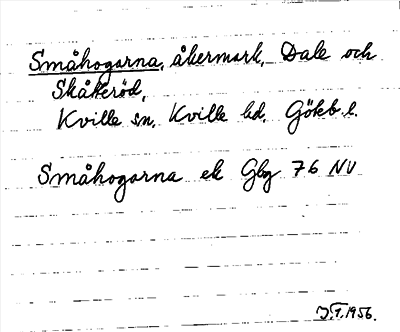 Småhogarna, åkermark, Dale och
Skåkeröd,
Kville sn, Kville hd, Göteb. l.
Småhogarna ek Gbg 76 NV
J.T. 1956.